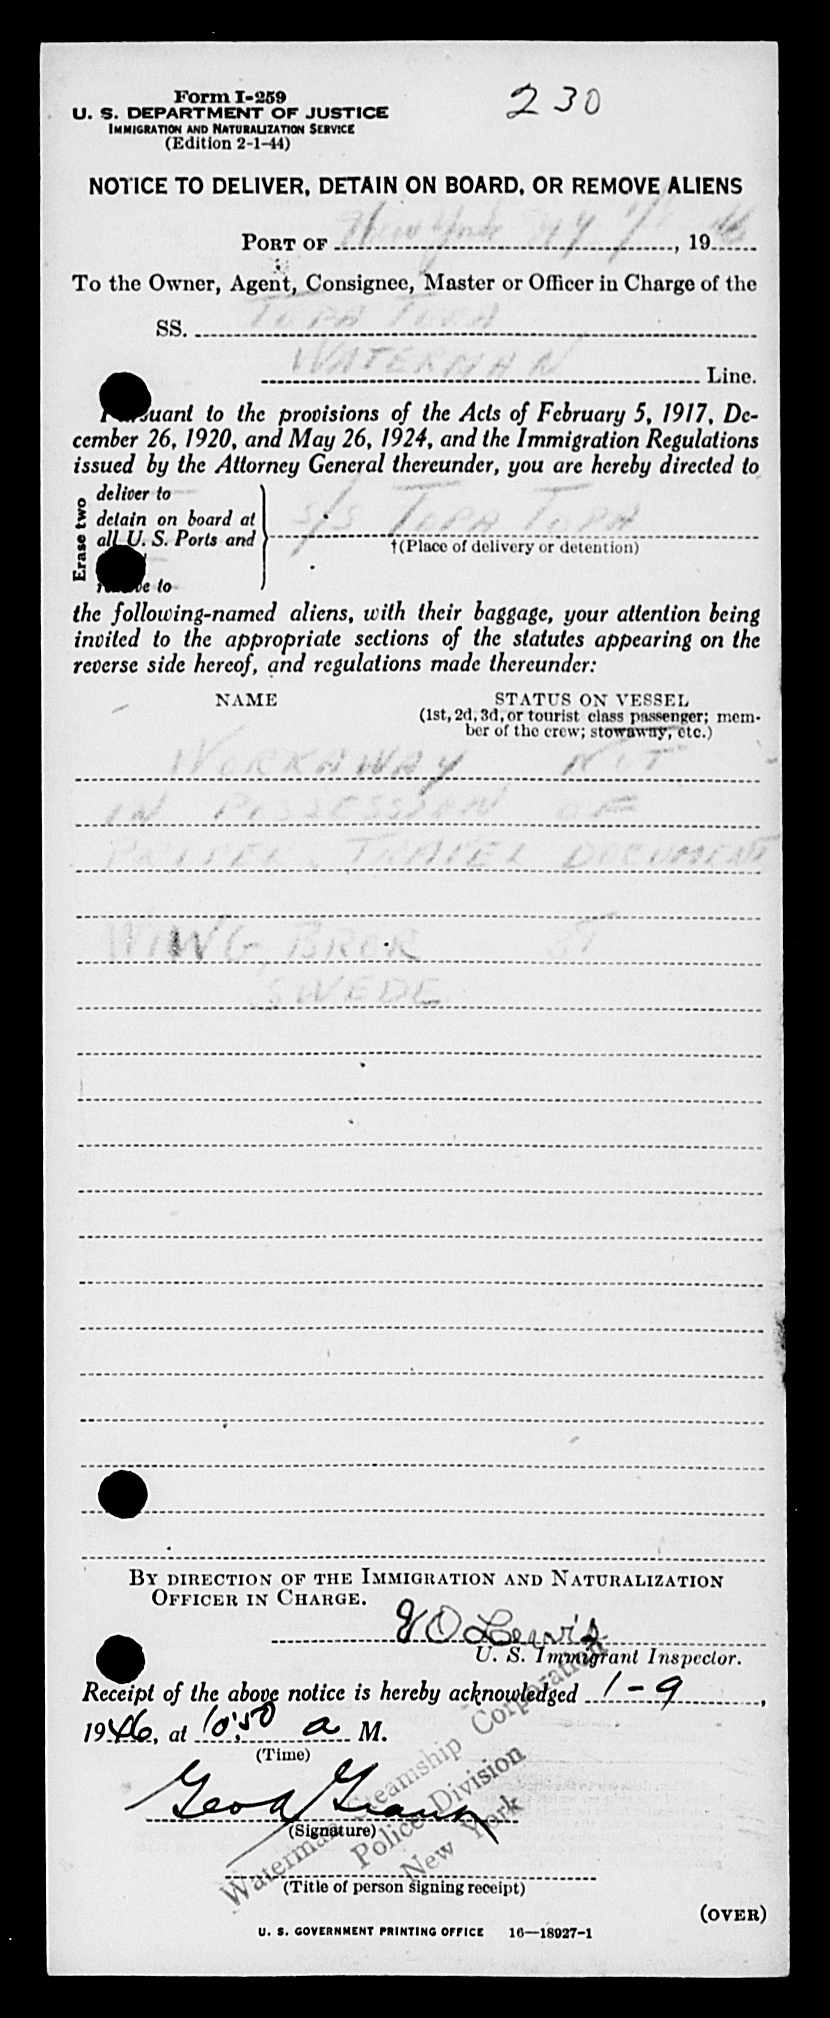 Form I-259
230
U. S. DEPARTMENT OF JUSTICE
IMMIGRATION AND NATURALIZATION SERVICE
(Edition 2-1-44)
NOTICE TO DELIVER, DETAIN ON BOARD, OR REMOVE ALIENS
PORT OF New York NY , 19 46
To the Owner, Agent, Consignee, Master or Officer in Charge of the
SS. TOPA TOPA
WATERMAN Line.
Pursuant to the provisions of the Acts of February 5, 1917, De-
cember 26, 1920, and May 26, 1924, and the Immigration Regulations
issued by the Attorney General thereunder, you are hereby directed to
Erase two
deliver to
detain on board at
all U. S. Ports and
S/S TOPA TOPA
†(Place of delivery or detention)
remove to
the following-named aliens, with their baggage, your attention being
invited to the appropriate sections of the statutes appearing on the
reverse side hereof, and regulations made thereunder:
NAME STATUS ON VESSEL
(1st, 2d, 3d, or tourist class passenger; mem-
ber of the crew; stowaway, etc.)
WORKAWAY NOT
IN POSSESSION OF
PROPER TRAVEL DOCUMENT
WIWG, BROR
SWEDE
BY DIRECTION OF THE IMMIGRATION AND NATURALIZATION
OFFICER IN CHARGE.
Lewis
U. S. Immigrant Inspector.
Receipt of the above notice is hereby acknowledged 1-9,
1946, at 10:50 a M.
(Time)
Waterman Steamship Corporation
Police Division
New York
(Signature)
(Title of person signing receipt)
(OVER)
U. S. GOVERNMENT PRINTING OFFICE 16—18927-1